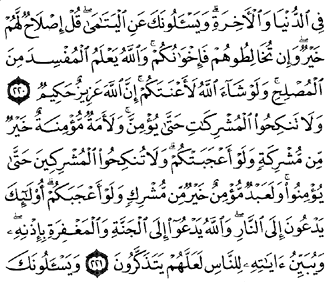 فِي الدُّنْيَا وَالْآخِرَةِ ۗ وَيَسْـَٔلُونَكَ عَنِ الْيَتَامَىٰ ۖ قُلْ إِصْلَاحٌ لَّهُمْ
خَيْرٌ ۖ وَإِن تُخَالِطُوهُمْ فَإِخْوَانُكُمْ ۚ وَاللَّهُ يَعْلَمُ الْمُفْسِدَ مِنَ
الْمُصْلِحِ ۚ وَلَوْ شَاءَ اللَّهُ لَأَعْنَتَكُمْ ۚ إِنَّ اللَّهَ عَزِيزٌ حَكِيمٌ ٢٢٠
وَلَا تَنكِحُوا الْمُشْرِكَاتِ حَتَّىٰ يُؤْمِنَّ ۚ وَلَأَمَةٌ مُّؤْمِنَةٌ خَيْرٌ
مِّن مُّشْرِكَةٍ وَلَوْ أَعْجَبَتْكُمْ ۗ وَلَا تُنكِحُوا الْمُشْرِكِينَ حَتَّىٰ
يُؤْمِنُوا ۚ وَلَعَبْدٌ مُّؤْمِنٌ خَيْرٌ مِّن مُّشْرِكٍ وَلَوْ أَعْجَبَكُمْ ۗ أُولَٰئِكَ
يَدْعُونَ إِلَى النَّارِ ۖ وَاللَّهُ يَدْعُوا إِلَى الْجَنَّةِ وَالْمَغْفِرَةِ بِإِذْنِهِ ۖ
وَيُبَيِّنُ ءَايَاتِهِ لِلنَّاسِ لَعَلَّهُمْ يَتَذَكَّرُونَ ٢٢١ وَيَسْـَٔلُونَكَ